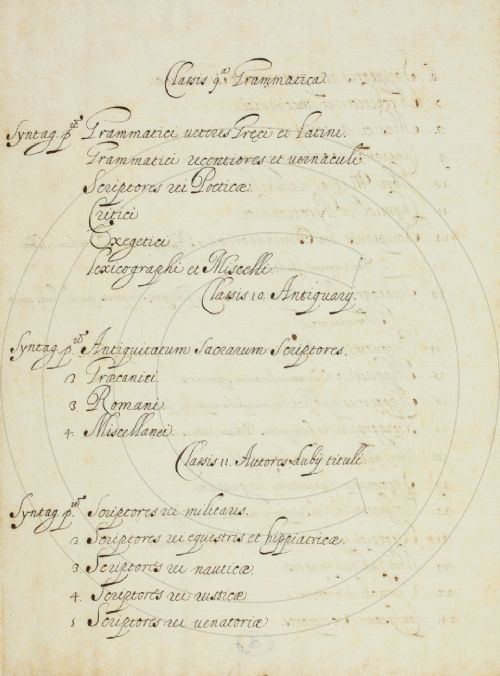 Classis 9.ª Grammatica
Syntag. p.ᵘᵐ Grammatici veteres Gręci et Latini.
Grammatici recentiores et vernaculi
Scriptores rei Poeticæ
Critici
Exegetici.
Lexicographi et Miscelli.
Classis 10. Antiquarij.
Syntag. p.ᵘᵐ Antiquitatum Sacrarum Scriptores.
2 Græcanici.
3 Romani.
4. Miscellanei.
Classis 11. Autores dubij tituli
Syntag. p.ᵘᵐ Scriptores rei militaris.
2 Scriptores rei equestris et hippiatricæ.
3. Scriptores rei nauticæ.
4. Scriptores rei rusticæ
5 Scriptores rei venatoriæ